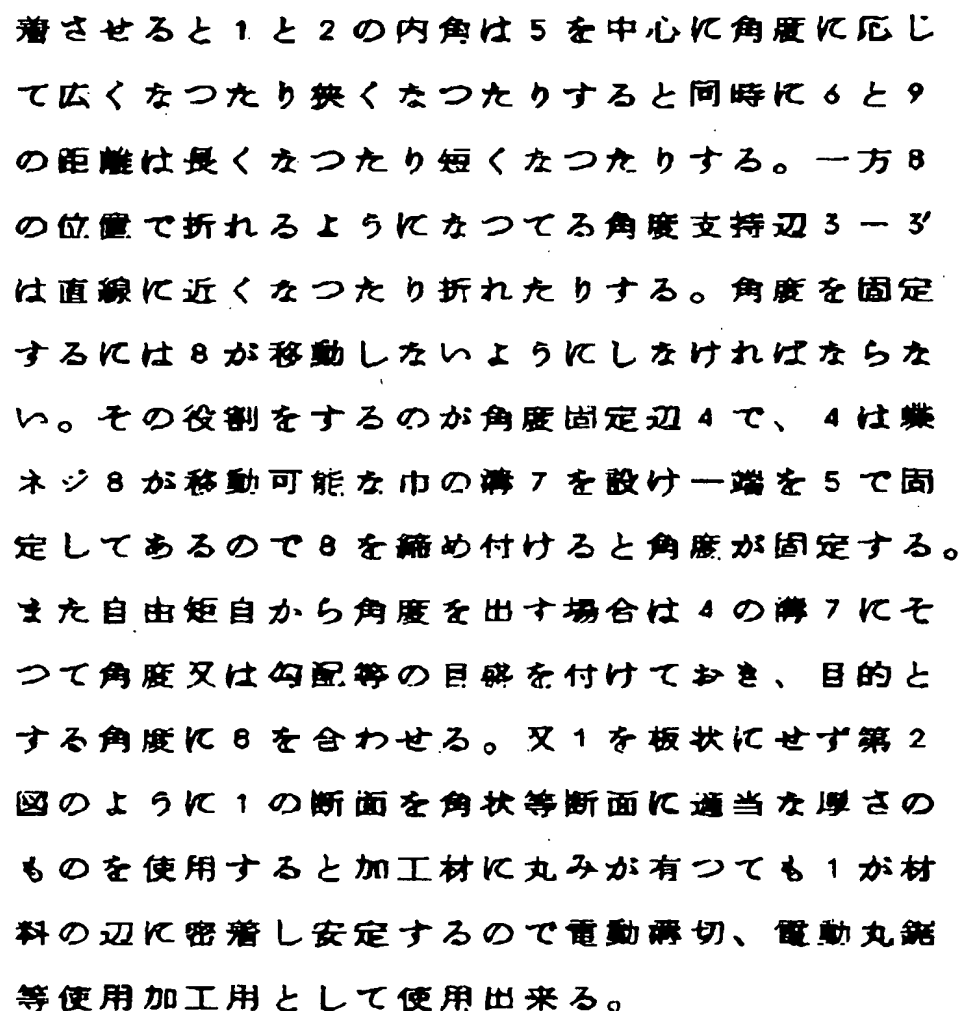 着させると1と2の内角は5を中心に角度に応じ
て広くなつたり狭くなつたりすると同時に6と9
の距離は長くなつたり短くなつたりする。一方8
の位置で折れるようになつてる角度支持辺3－3′
は直線に近くなつたり折れたりする。角度を固定
するには8が移動しないようにしなければならな
い。その役割をするのが角度固定辺4で、4は蝶
ネジ8が移動可能な巾の溝7を設け一端を5で固
定してあるので8を締め付けると角度が固定する。
また自由矩自から角度を出す場合は4の溝7にそ
つて角度又は勾配等の目盛を付けておき、目的と
する角度に8を合わせる。又1を板状にせず第2
図のように1の断面を角状等断面に適当な厚さの
ものを使用すると加工材に丸みが有つても1が材
料の辺に密着し安定するので電動溝切、電動丸鋸
等使用加工用として使用出来る。